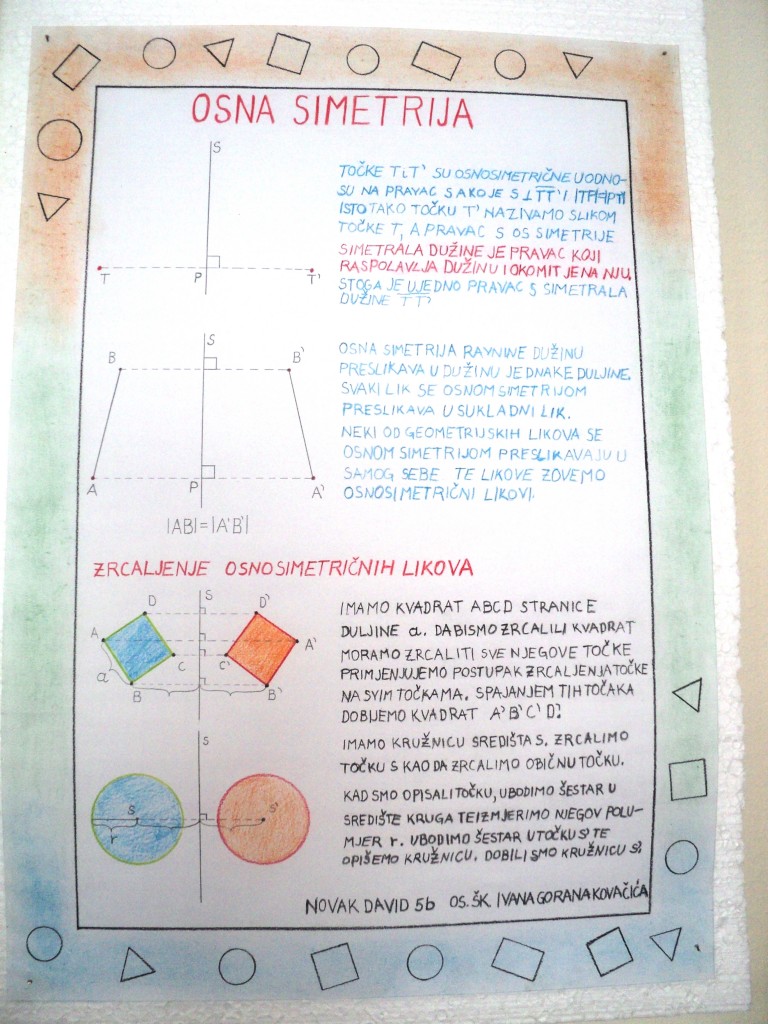 OSNA SIMETRIJA
S
T
P
T'
TOČKE T i T' SU OSNOSIMETRIČNE U ODNO-
SU NA PRAVAC S AKO JE S ⊥ TT' I |TP|=|PT'|
ISTO TAKO TOČKU T' NAZIVAMO SLIKOM
TOČKE T, A PRAVAC S OS SIMETRIJE
SIMETRALA DUŽINE JE PRAVAC KOJI
RASPOLAVLJA DUŽINU I OKOMIT JE NA NJU.
STOGA JE UJEDNO PRAVAC S SIMETRALA
DUŽINE TT'
S
B
B'
A
P
A'
|AB|=|A'B'|
OSNA SIMETRIJA RAVNINE DUŽINU
PRESLIKAVA U DUŽINU JEDNAKE DULJINE.
SVAKI LIK SE OSNOM SIMETRIJOM
PRESLIKAVA U SUKLADNI LIK.
NEKI OD GEOMETRIJSKIH LIKOVA SE
OSNOM SIMETRIJOM PRESLIKAVAJU U
SAMOG SEBE TE LIKOVE ZOVEMO
OSNOSIMETRIČNI LIKOVI.
ZRCALJENJE OSNOSIMETRIČNIH LIKOVA
S
D
D'
A
A'
C
C'
a
B
B'
IMAMO KVADRAT ABCD STRANICE
DULJINE a. DA BISMO ZRCALILI KVADRAT
MORAMO ZRCALITI SVE NJEGOVE TOČKE
PRIMJENJUJEMO POSTUPAK ZRCALJENJA TOČKE
NA SVIM TOČKAMA. SPAJANJEM TIH TOČAKA
DOBIJEMO KVADRAT A'B'C'D'.
S
S
S'
r
IMAMO KRUŽNICU SREDIŠTA S. ZRCALIMO
TOČKU S KAO DA ZRCALIMO OBIČNU TOČKU.
KAD SMO OPISALI TOČKU, UBODIMO ŠESTAR U
SREDIŠTE KRUGA TE IZMJERIMO NJEGOV POLU-
MJER r. UBODIMO ŠESTAR U TOČKU S' TE
OPIŠEMO KRUŽNICU. DOBILI SMO KRUŽNICU S'.
NOVAK DAVID 5b OS. ŠK. IVANA GORANA KOVAČIĆA